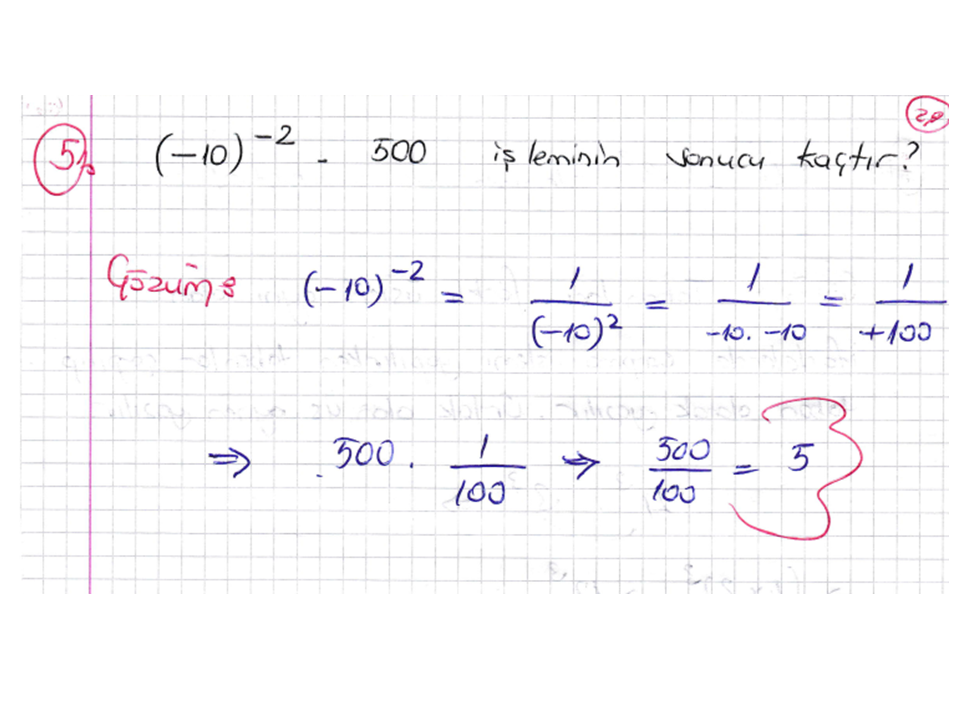 2p
5) (-10)^-2 . 500 işleminin sonucu kaçtır?
Çözüm: (-10)^-2 = 1/(-10)^2 = 1/-10. -10 = 1/+100
⇒ . 500 . 1/100 ⇒ 500/100 = 5